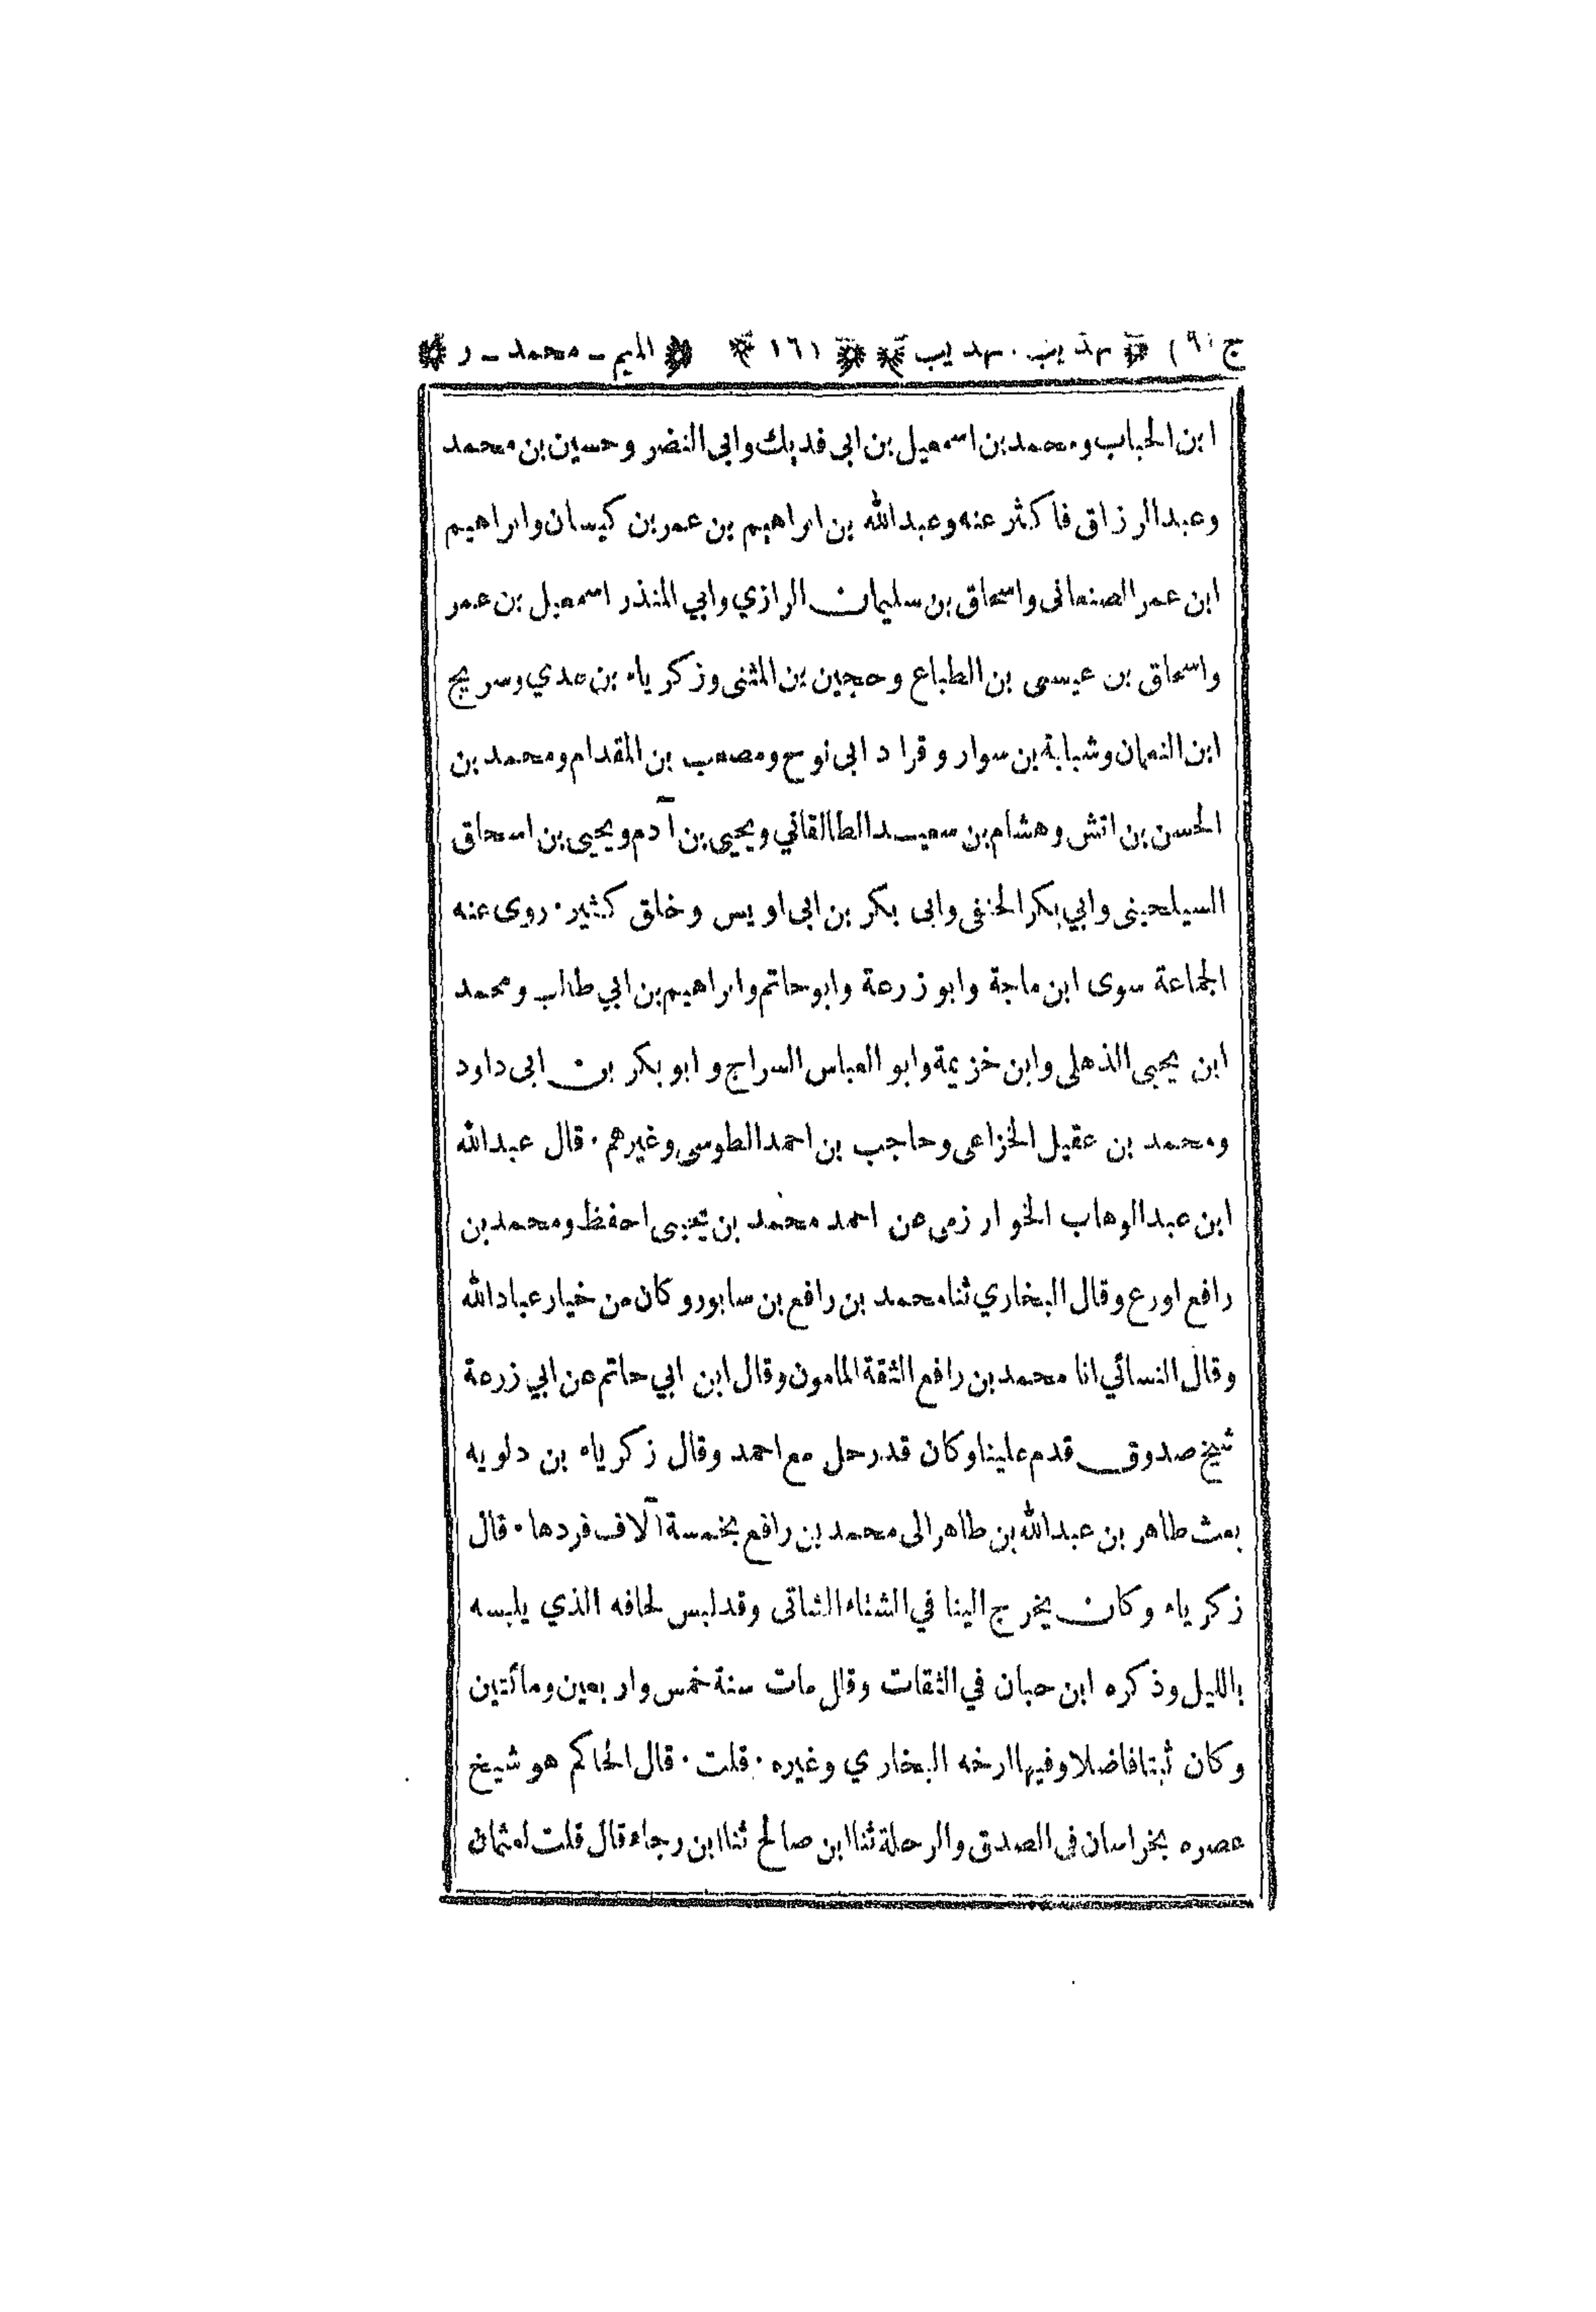 ج (٩) تهذيب التهذيب ١٦١ الميم - محمد - ر
ابن الحباب ومحمد بن اسمعيل بن ابى فديك وابى النضر وحسين بن محمد
وعبد الرزاق فاكثر عنه وعبد الله بن ابراهيم بن عمر بن كيسان وابراهيم
ابن عمر الصنعانى واسحاق بن سليمان الرازي وابي المنذر اسمعيل بن عمر
واسحاق بن عيسى بن الطباع وحجين بن المثنى وزكرياء بن عدي وسريج
ابن النعمان وشبابة بن سوار وقراد ابى نوح ومصعب بن المقدام ومحمد بن
الحسن بن اتش وهشام بن سعيد الطالقاني ويحيى بن آدم ويحيى بن اسحاق
السيلحينى وابي بكر الحنفى وابى بكر بن ابى اويس وخلق كثير. روى عنه
الجماعة سوى ابن ماجة وابو زرعة وابو حاتم وابراهيم بن ابي طالب ومحمد
ابن يحيى الذهلى وابن خزيمة وابو العباس السراج وابو بكر بن ابى داود
ومحمد بن عقيل الخزاعى وحاجب بن احمد الطوسى وغيرهم. قال عبد الله
ابن عبد الوهاب الخوارزمى عن احمد محمد بن يحيى احفظ ومحمد بن
رافع اورع وقال البخاري ثنا محمد بن رافع بن سابور وكان من خيار عباد الله
وقال النسائي انا محمد بن رافع الثقة المامون وقال ابن ابي حاتم عن ابي زرعة
شيخ صدوق قدم علينا وكان قد رحل مع احمد وقال زكرياء بن دلويه
بعث طاهر بن عبد الله بن طاهر الى محمد بن رافع بخمسة آلاف فردها. قال
زكرياء وكان يخرج الينا في الشتاء الشاتى وقد لبس لحافه الذي يلبسه
بالليل وذكره ابن حبان في الثقات وقال مات سنة خمس واربعين ومائتين
وكان ثبتا فاضلا وفيها ارخه البخاري وغيره. قلت. قال الحاكم هو شيخ
عصره بخراسان فى الصدق والرحلة ثنا ابن صالح ثنا ابن رجاء قال قلت لعثمان